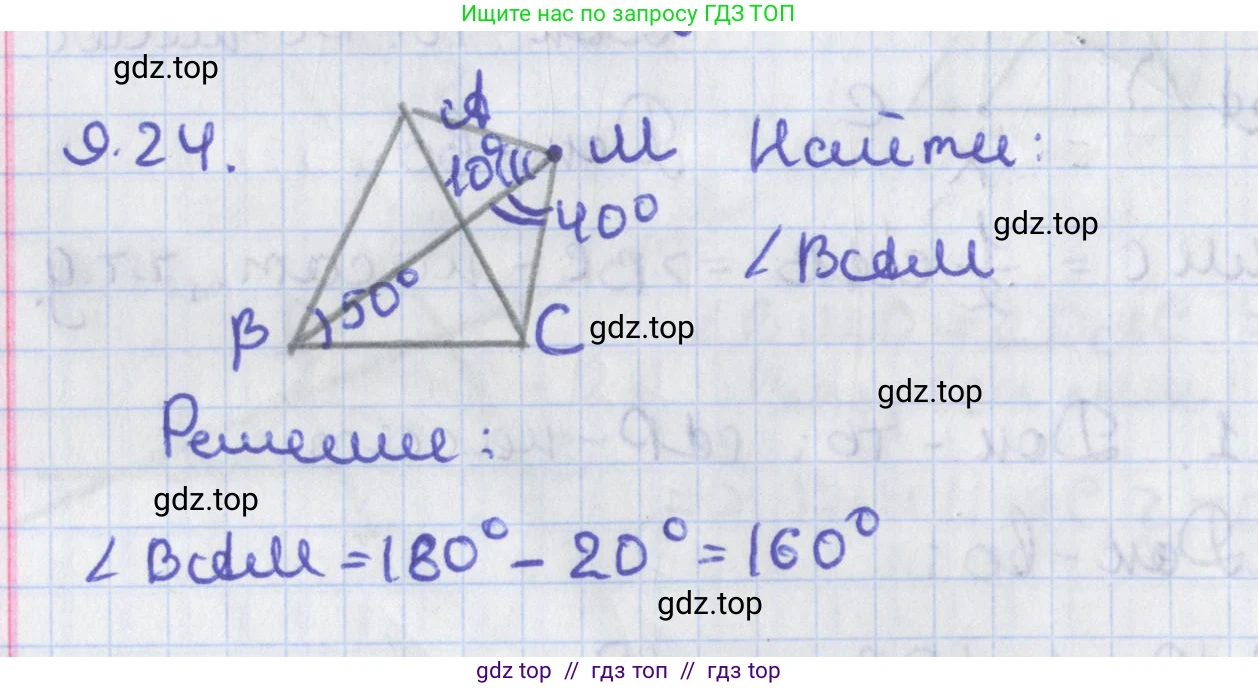 Ищите нас по запросу ГДЗ ТОП
gdz.top
9.24.
A
M
10°
40°
50°
B
C
Найти:
∠BAM
gdz.top
gdz.top
gdz.top
Решение:
gdz.top
∠BAM = 180° - 20° = 160°
gdz.top
gdz top // гдз топ // gdz top